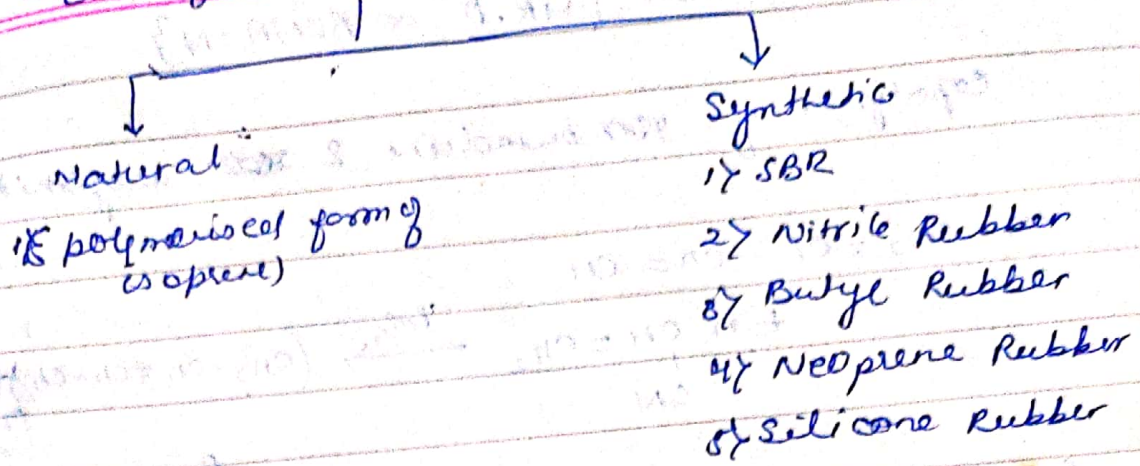 Natural
1) polymerised form of
isoprene)
Synthetic
1) SBR
2) Nitrile Rubber
3) Butyl Rubber
4) Neoprene Rubber
5) Silicone Rubber